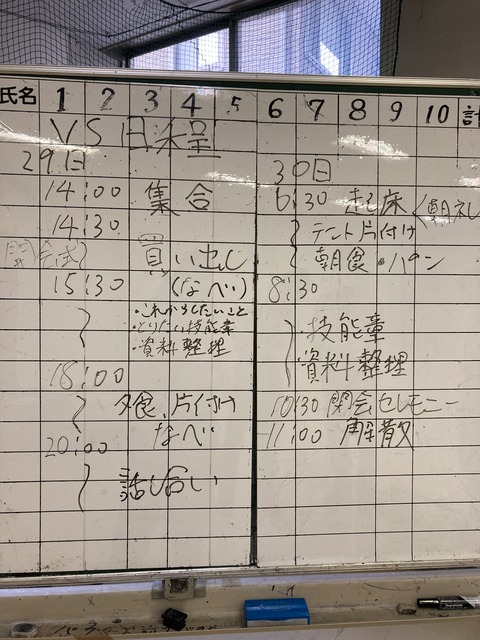 氏名 1 2 3 4 5 6 7 8 9 10 計
VS日程
29日
14:00 集合
14:30
開会式) 買い出し
15:30 (なべ)
・これからしたいこと
・とりたい技能章
・資料整理
18:00
夕食、片付け
なべ
20:00
話し合い
30日
6:30 起床<朝礼
テント片付け
朝食・パン
8:30
・技能章
・資料整理
10:30 閉会セレモニー
11:00 解散